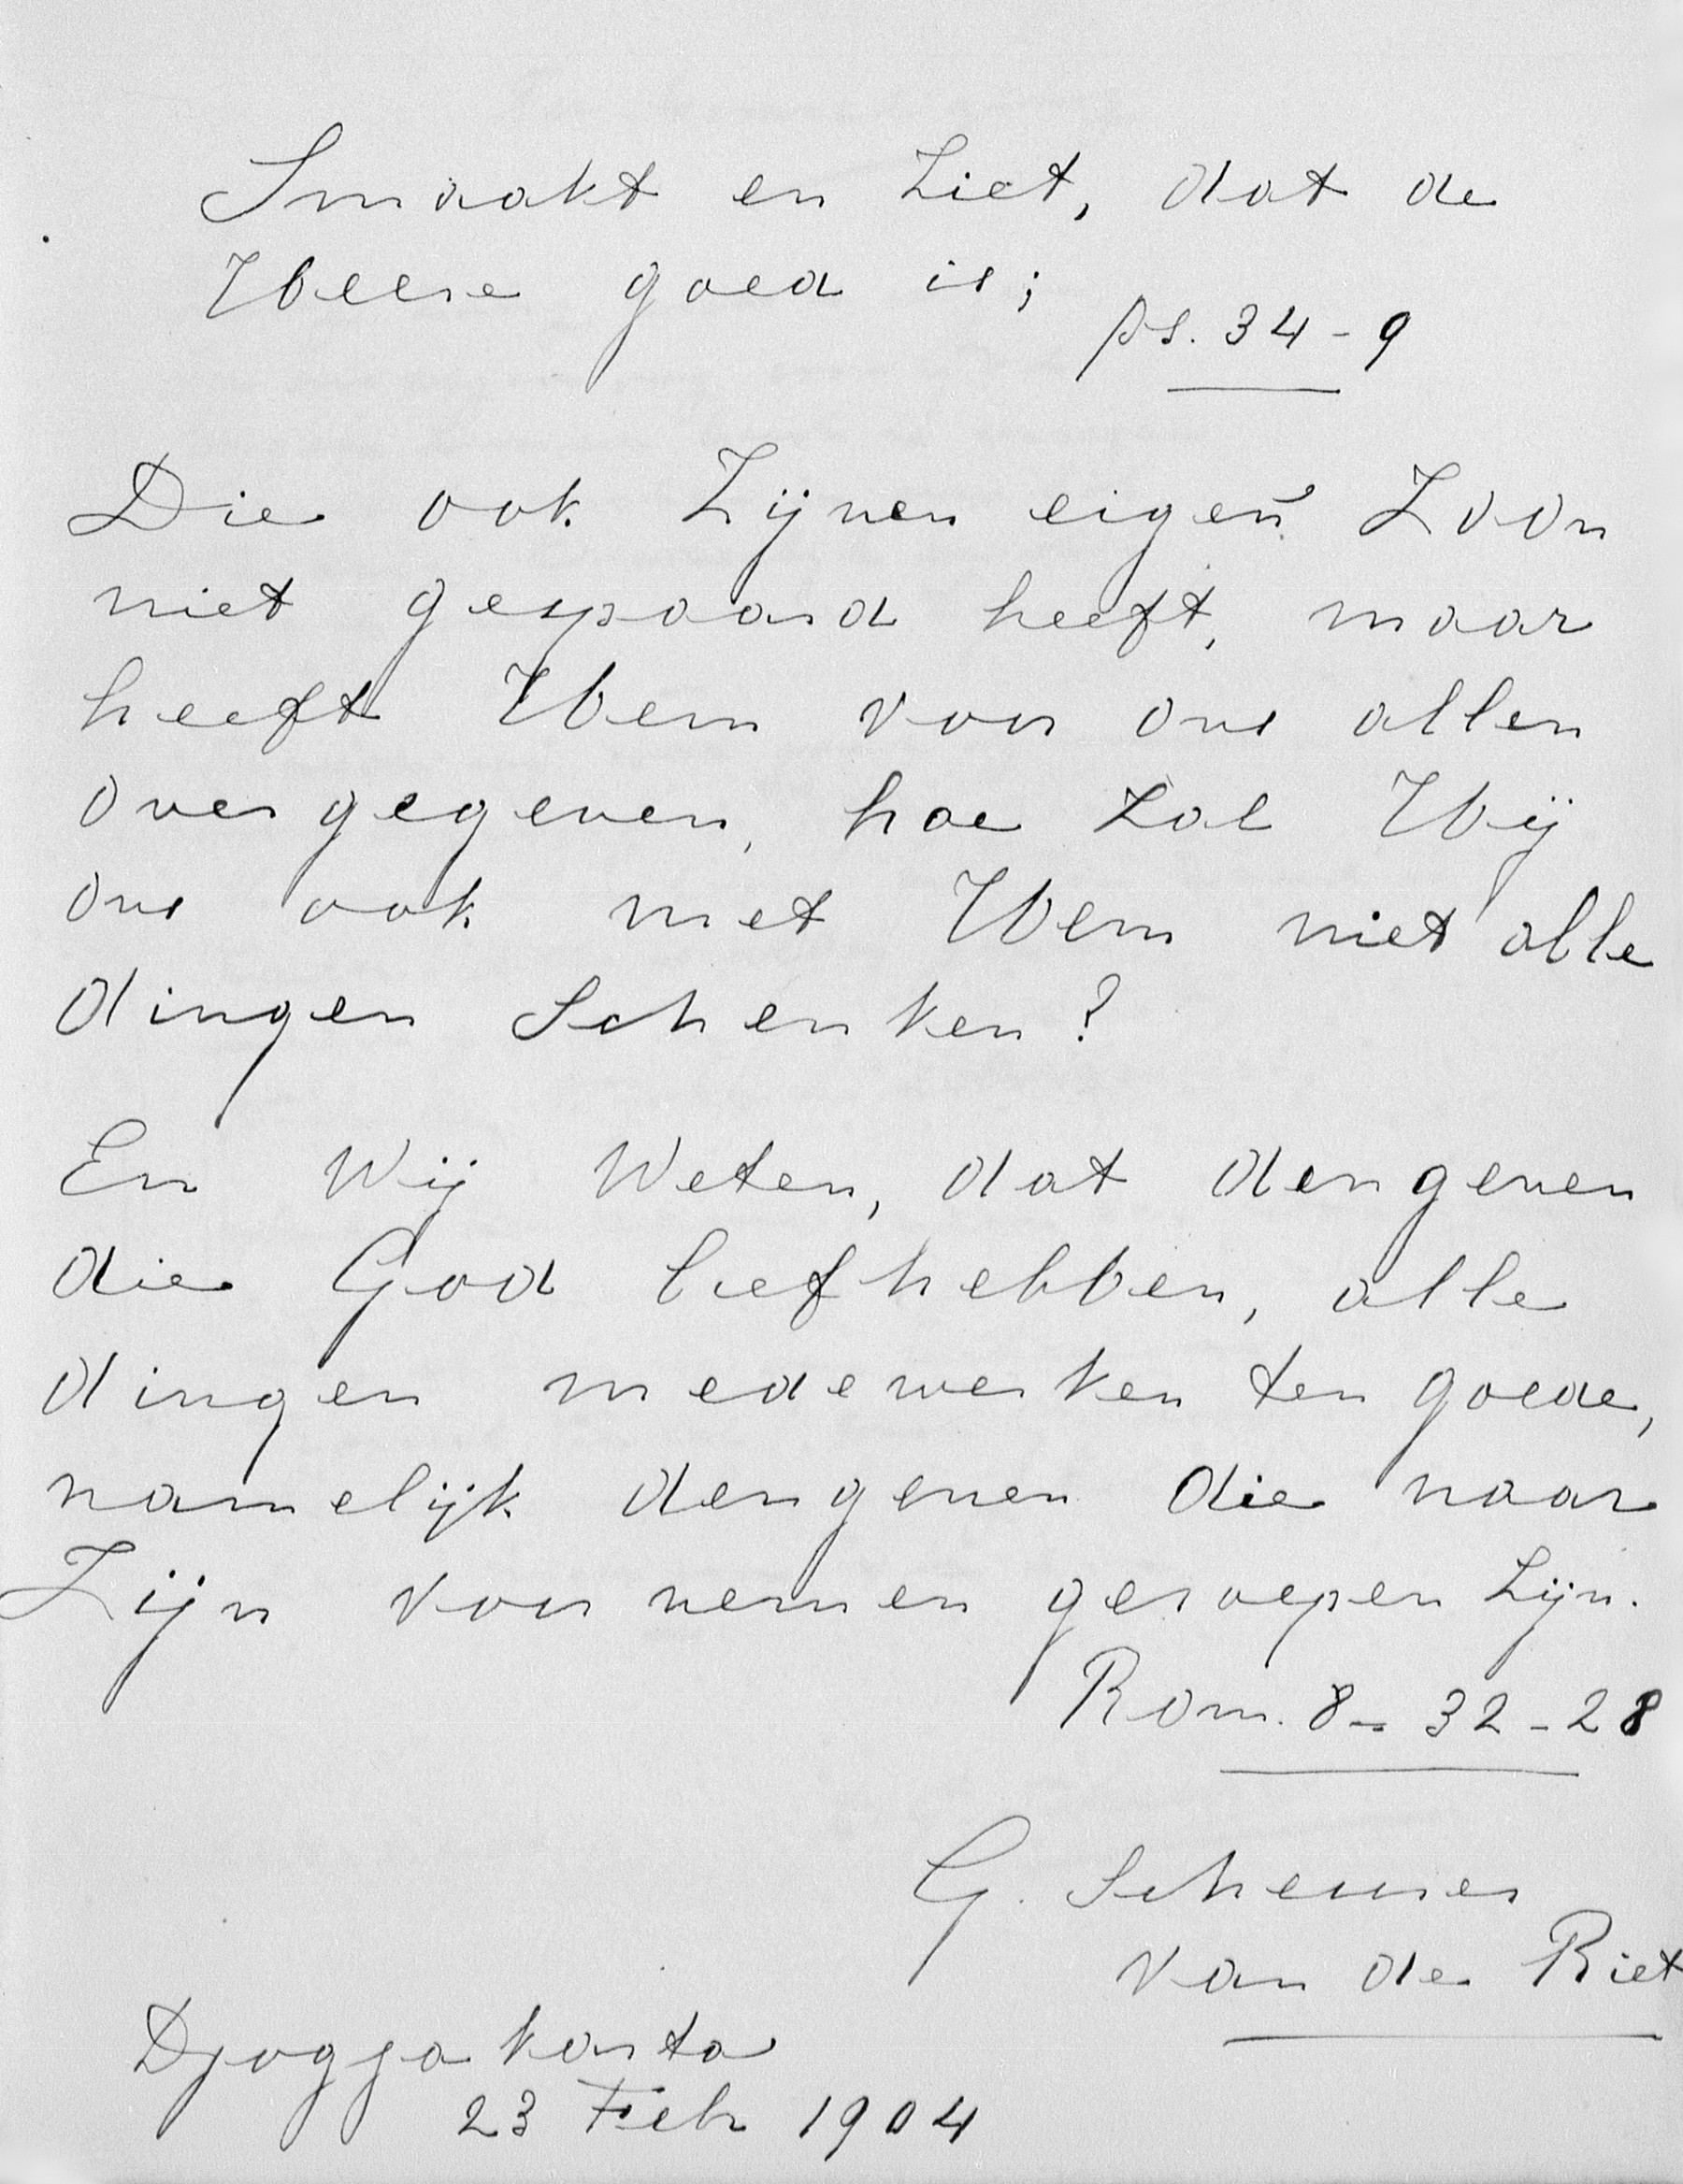 Smaakt en Ziet, dat de
Heere goed is;
Ps. 34 - 9
Die ook Zijnen eigen Zoon
niet gespaard heeft, maar
heeft Hem voor ons allen
overgegeven, hoe Zal Hij
ons ook met Hem niet alle
dingen Schenken?
En Wij Weten, dat dengenen
die God liefhebben, alle
dingen medewerken ten goede,
namelijk dengenen die naar
Zijn voornemen geroepen Zijn.
Rom. 8 - 32 - 28
G. Scheurer
van de Riet
Djoggjakarta
23 Feb 1904